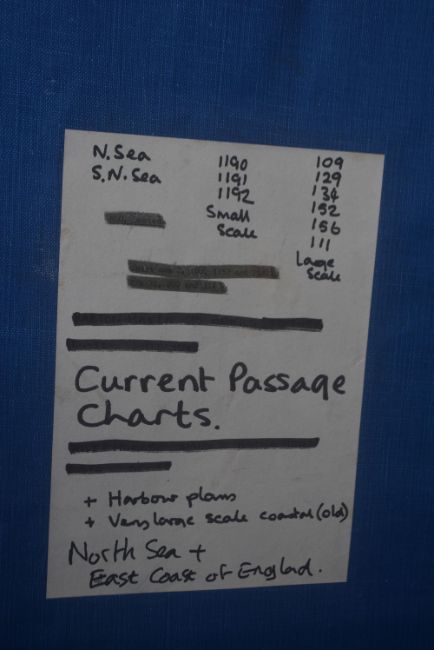 N. Sea 1190 109
S.N. Sea 1191 129
1192 134
Small 152
Scale 156
111
Large
Scale
Current Passage
Charts.
+ Harbour plans
+ Very large scale coastal (old)
North Sea +
East Coast of England.